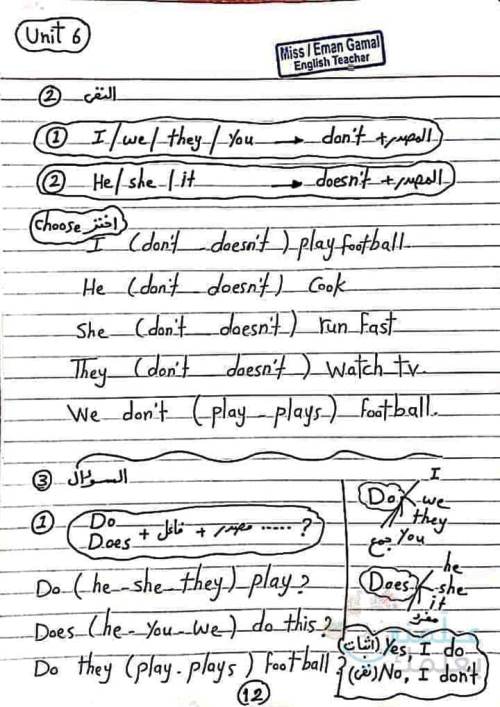 Unit 6
Miss / Eman Gamal
English Teacher
② النفى
① I / we / they / You → don't + المصدر
② He / she / it → doesn't + المصدر
Choose اختر
I (don't doesn't) play football.
He (don't doesn't) Cook
She (don't doesn't) run fast
They (don't doesn't) watch tv.
We don't (play - plays) football.
③ السؤال
① Do
Does + فاعل + مصدر ..... ?
Do (he - she - they) play?
Does (he - You - we) do this?
Do they (play - plays) football?
Do I
we
they
You
جمع
Does he
she
it
مفرد
(اثبات) Yes, I do
(نفى) No, I don't
12